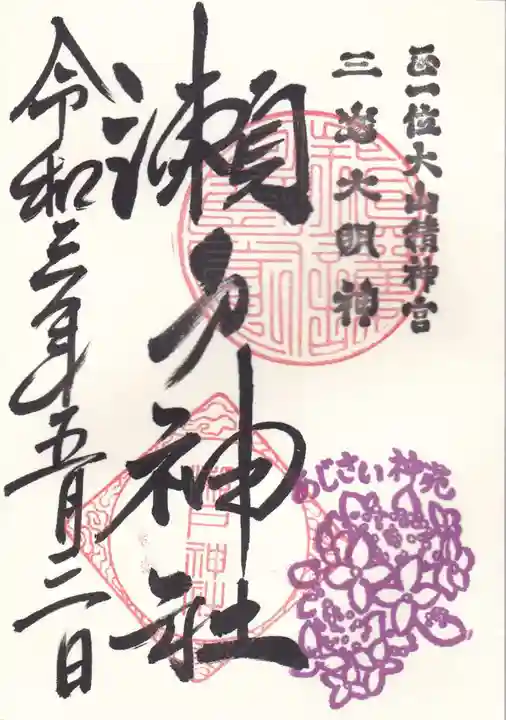 正一位大山積神宮
三嶋大明神
瀬戸神社
令和三年五月三日
瀬戸神社
あじさい神苑